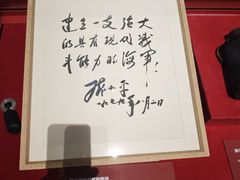 建立一支强大
的具有现代战
斗能力的海军！
邓小平
一九七九年八月二日